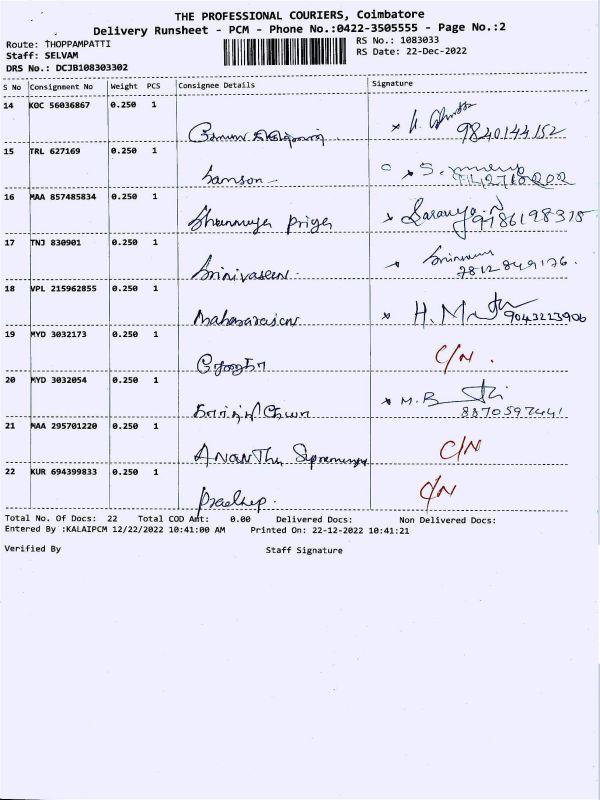 THE PROFESSIONAL COURIERS, Coimbatore
Delivery Runsheet - PCM - Phone No.:0422-3505555 - Page No.:2
Route: THOPPAMPATTI
RS No.: 1083033
Staff: SELVAM
RS Date: 22-Dec-2022
DRS No.: DCJB108303302
S No Consignment No Weight PCS Consignee Details Signature
14 KOC 56036867 0.250 1
9840144152
15 TRL 627169 0.250 1
Samson
16 MAA 857485834 0.250 1
Shanmuga priya Saranya.N 9786198315
17 TNJ 830901 0.250 1
Srinivasan 7812849176.
18 VPL 215962855 0.250 1
Maharasan H. 9043223906
19 MYD 3032173 0.250 1
C/N .
20 MYD 3032054 0.250 1
M. 8870597441
21 MAA 295701220 0.250 1
C/N
22 KUR 694399833 0.250 1
Pradeep. C/N
Total No. Of Docs: 22 Total COD Amt: 0.00 Delivered Docs: Non Delivered Docs:
Entered By :KALAIPCM 12/22/2022 10:41:00 AM Printed On: 22-12-2022 10:41:21
Verified By Staff Signature